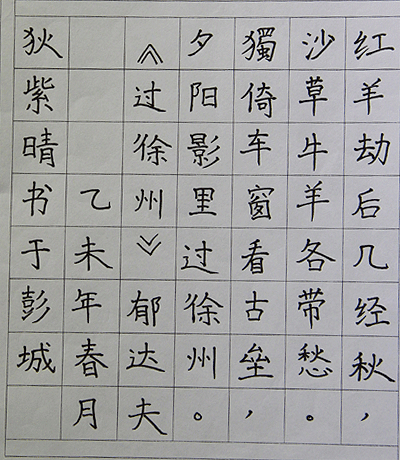 红羊劫后几经秋，
沙草牛羊各带愁。
獨倚车窗看古垒，
夕阳影里过徐州。
《过徐州》郁达夫
乙未年春月
狄紫晴书于彭城